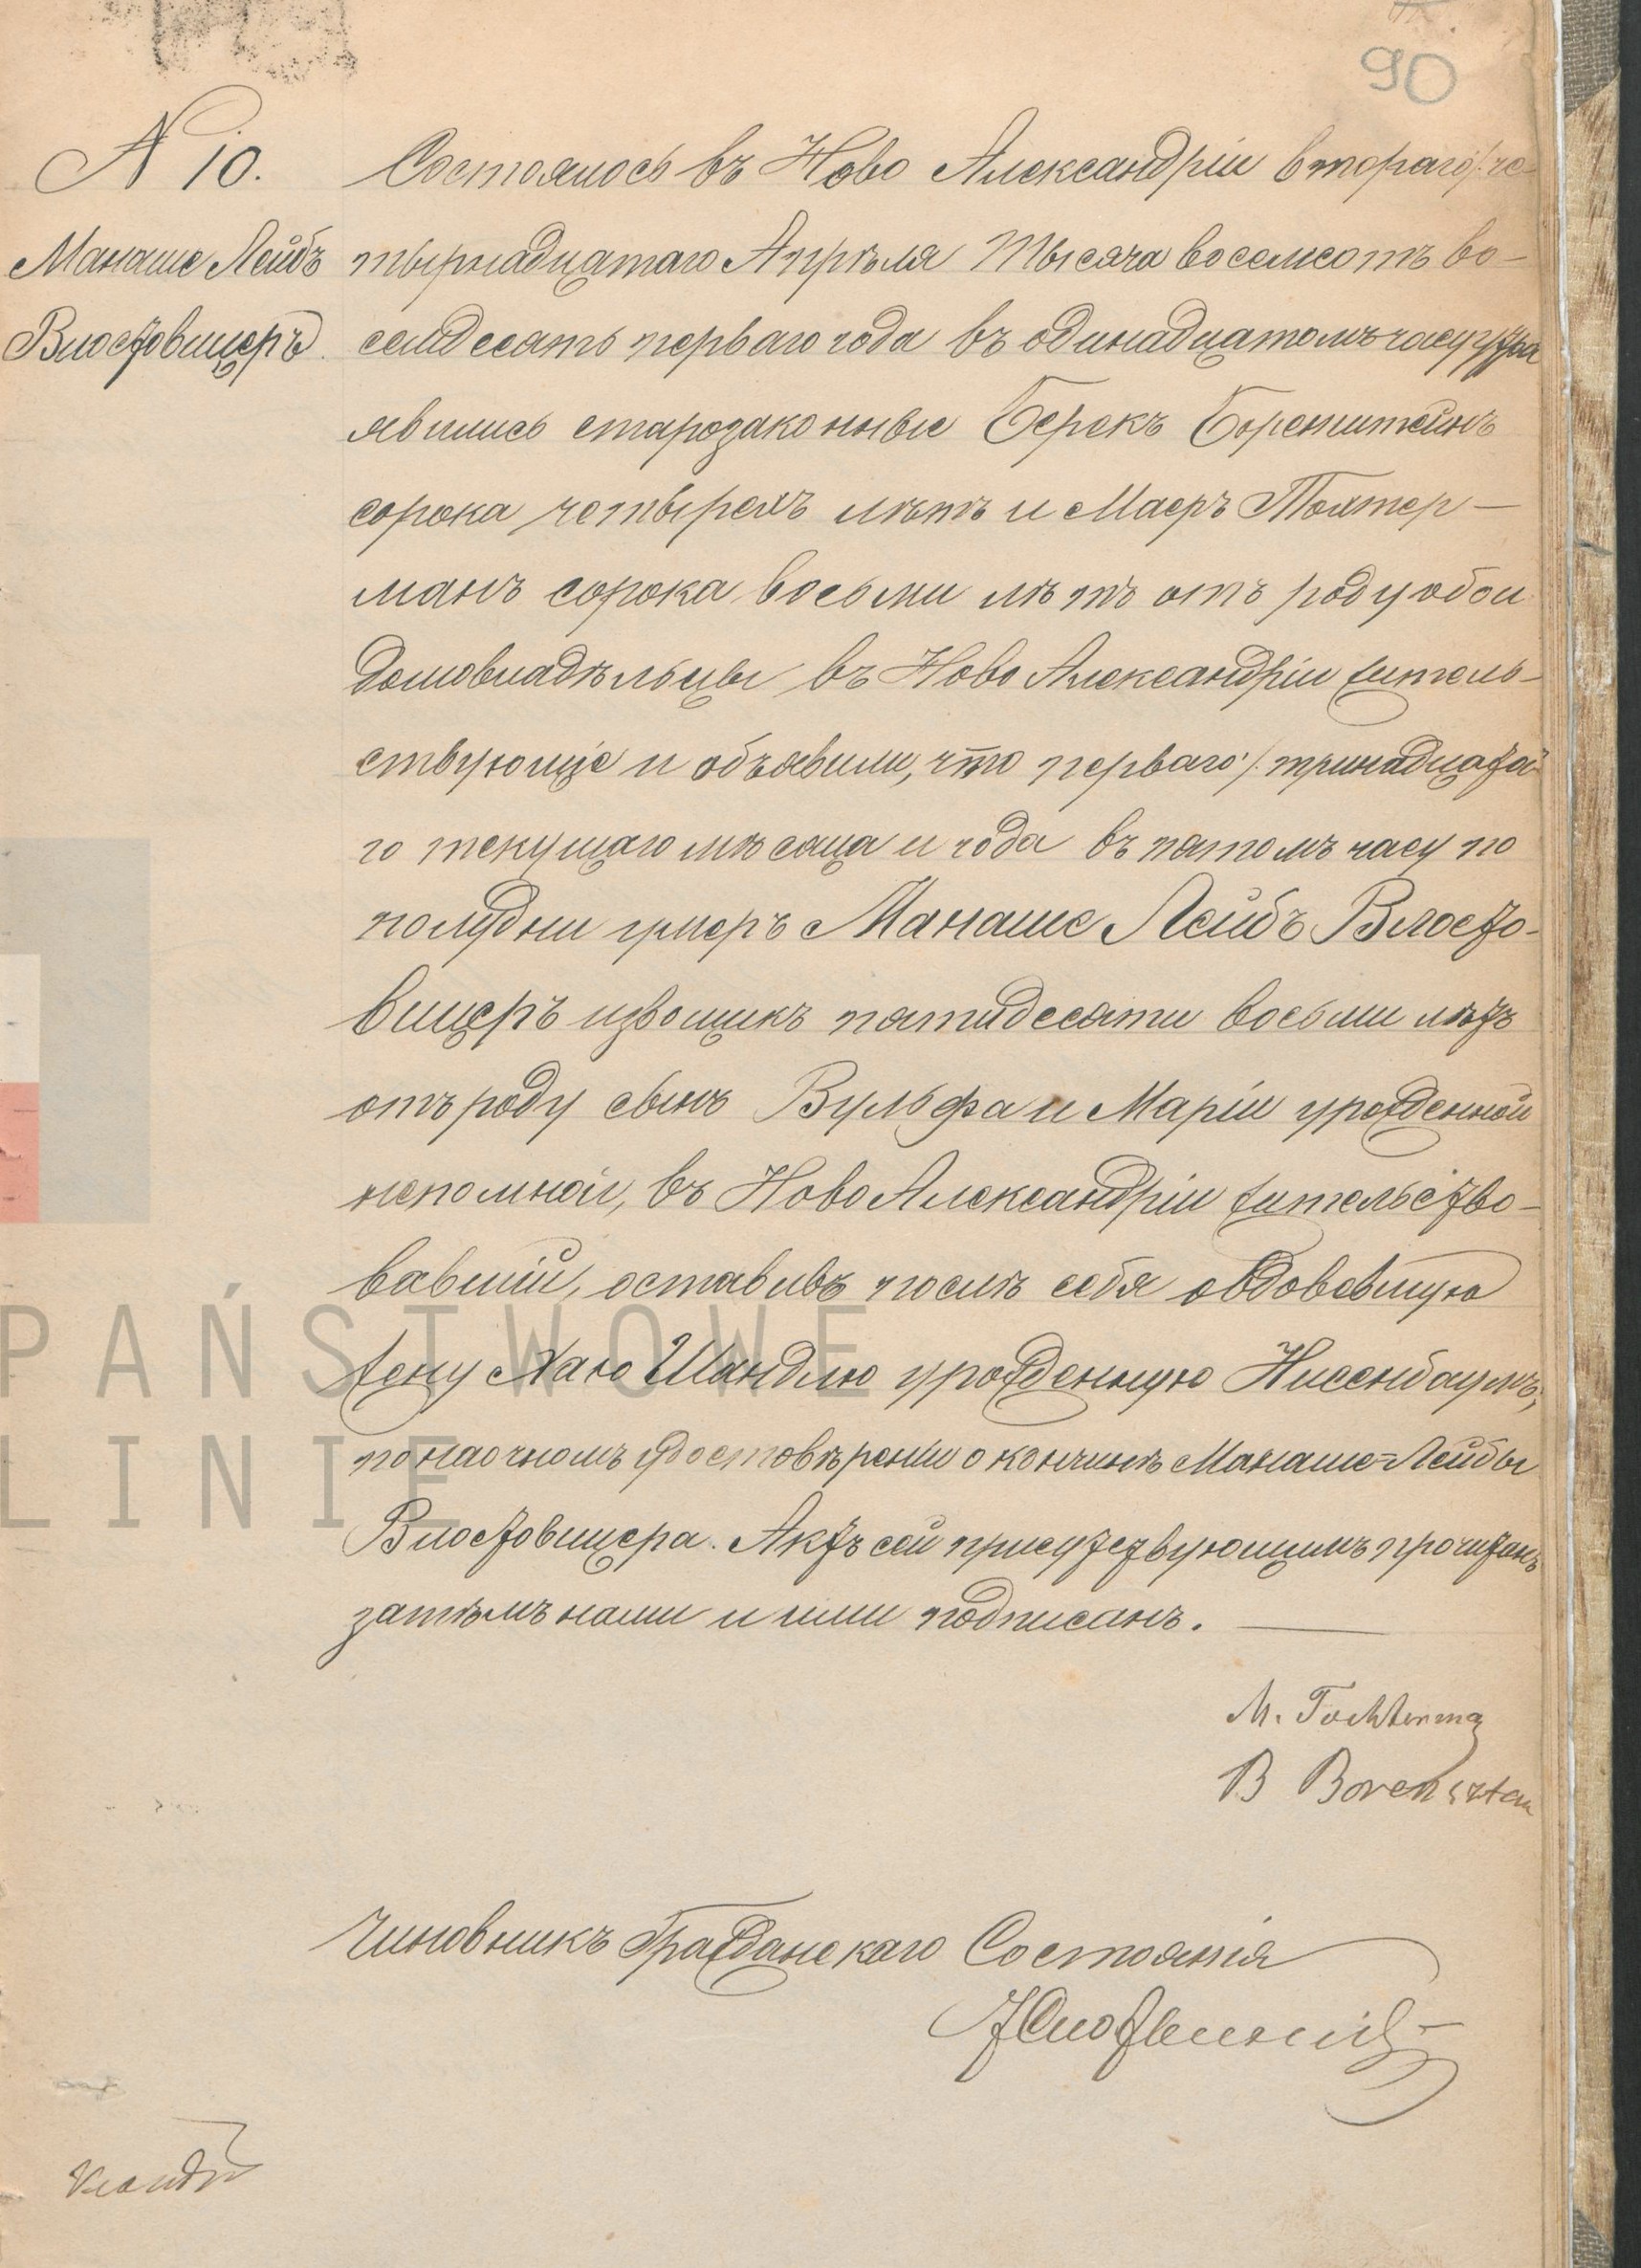 90
N 10.
Манаше Лейбъ
Влостовицеръ.
Состоялось въ Ново Александріи втораго/че-
тырнадцатаго Апрѣля тысяча восемсотъ во-
семдесятъ перваго года въ одинадцатомъ часу утра
явились старозаконные Берекъ Боренштейнъ
сорока четырехъ лѣтъ и Маеръ Тохтер-
манъ сорока восьми лѣтъ отъ роду обои
домовладѣльцы въ Ново Александріи житель-
ствующіе и объявили, что перваго/тринадцата-
го текущаго мѣсяца и года въ пятомъ часу по
полудни умеръ Манаше Лейбъ Влосто-
вицеръ извощикъ пятидесяти восьми лѣтъ
отъ роду сынъ Вульфа и Маріи урожденной
непомной, въ Ново Александріи жительство-
вавшій, оставивъ послѣ себя овдовевшую
жену Хаю Шандлю урожденную Нисенбаумъ;
по наочномъ удостовѣреніи о кончинѣ Манаше-Лейбы
Влостовицера. Актъ сей присутствующимъ прочитанъ
затѣмъ нами и ими подписанъ.
M. Tochterma
B Borensztan
Чиновникъ Гражданскаго Состоянія
PAŃSTWOWE
LINIE